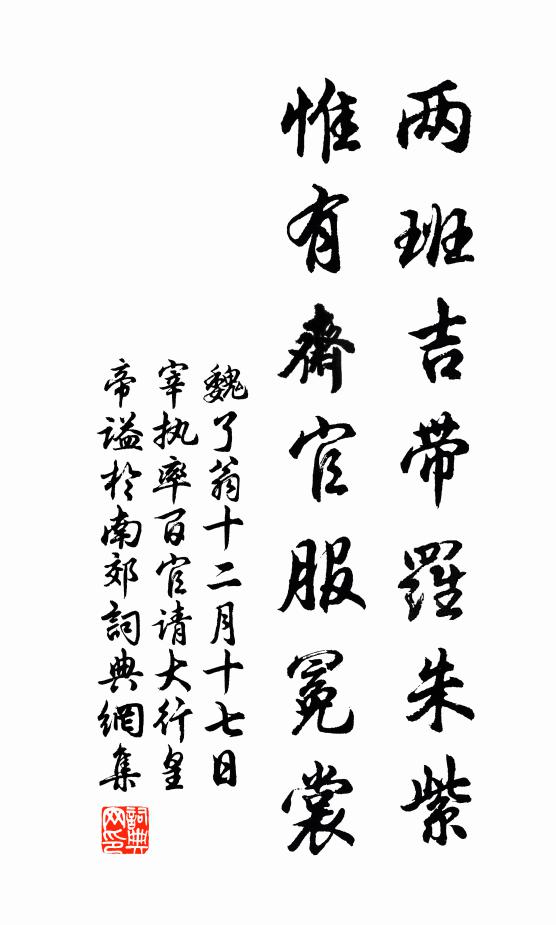 两班吉带羅朱紫
惟有齋官服冕裳
魏了翁十二月十七日
宰执率百官请大行皇
帝谥於南郊詞典網集
詞典
网印